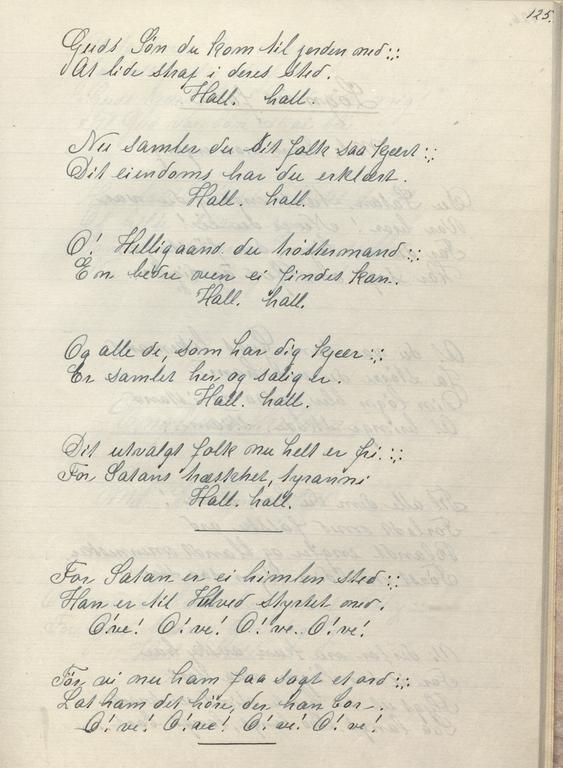 125.
Guds Søn du kom til jorden ned :,:
At lide straf i deres sted.
Hall. hall.
Nu samler du dit folk saa kjært :,:
Dit eiendoms har du erklært.
Hall. hall.
O! Helligaand du trøstermand :,:
En bedre ven ei findes kan.
Hall. hall.
Og alle de, som har dig kjær :,:
Er samlet her og salig er.
Hall. hall.
Dit utvalgt folk nu helt er fri :,:
For Satans træskhet, tyranni
Hall. hall.
For Satan er ei himlen sted :,:
Han er til Helved styrtet ned.
O!ve! O!ve! O!ve. O!ve!
Før vi nu ham faa sagt et ord :,:
Lat ham det høre, der han bor.
O!ve! O!ve! O!ve! O!ve!